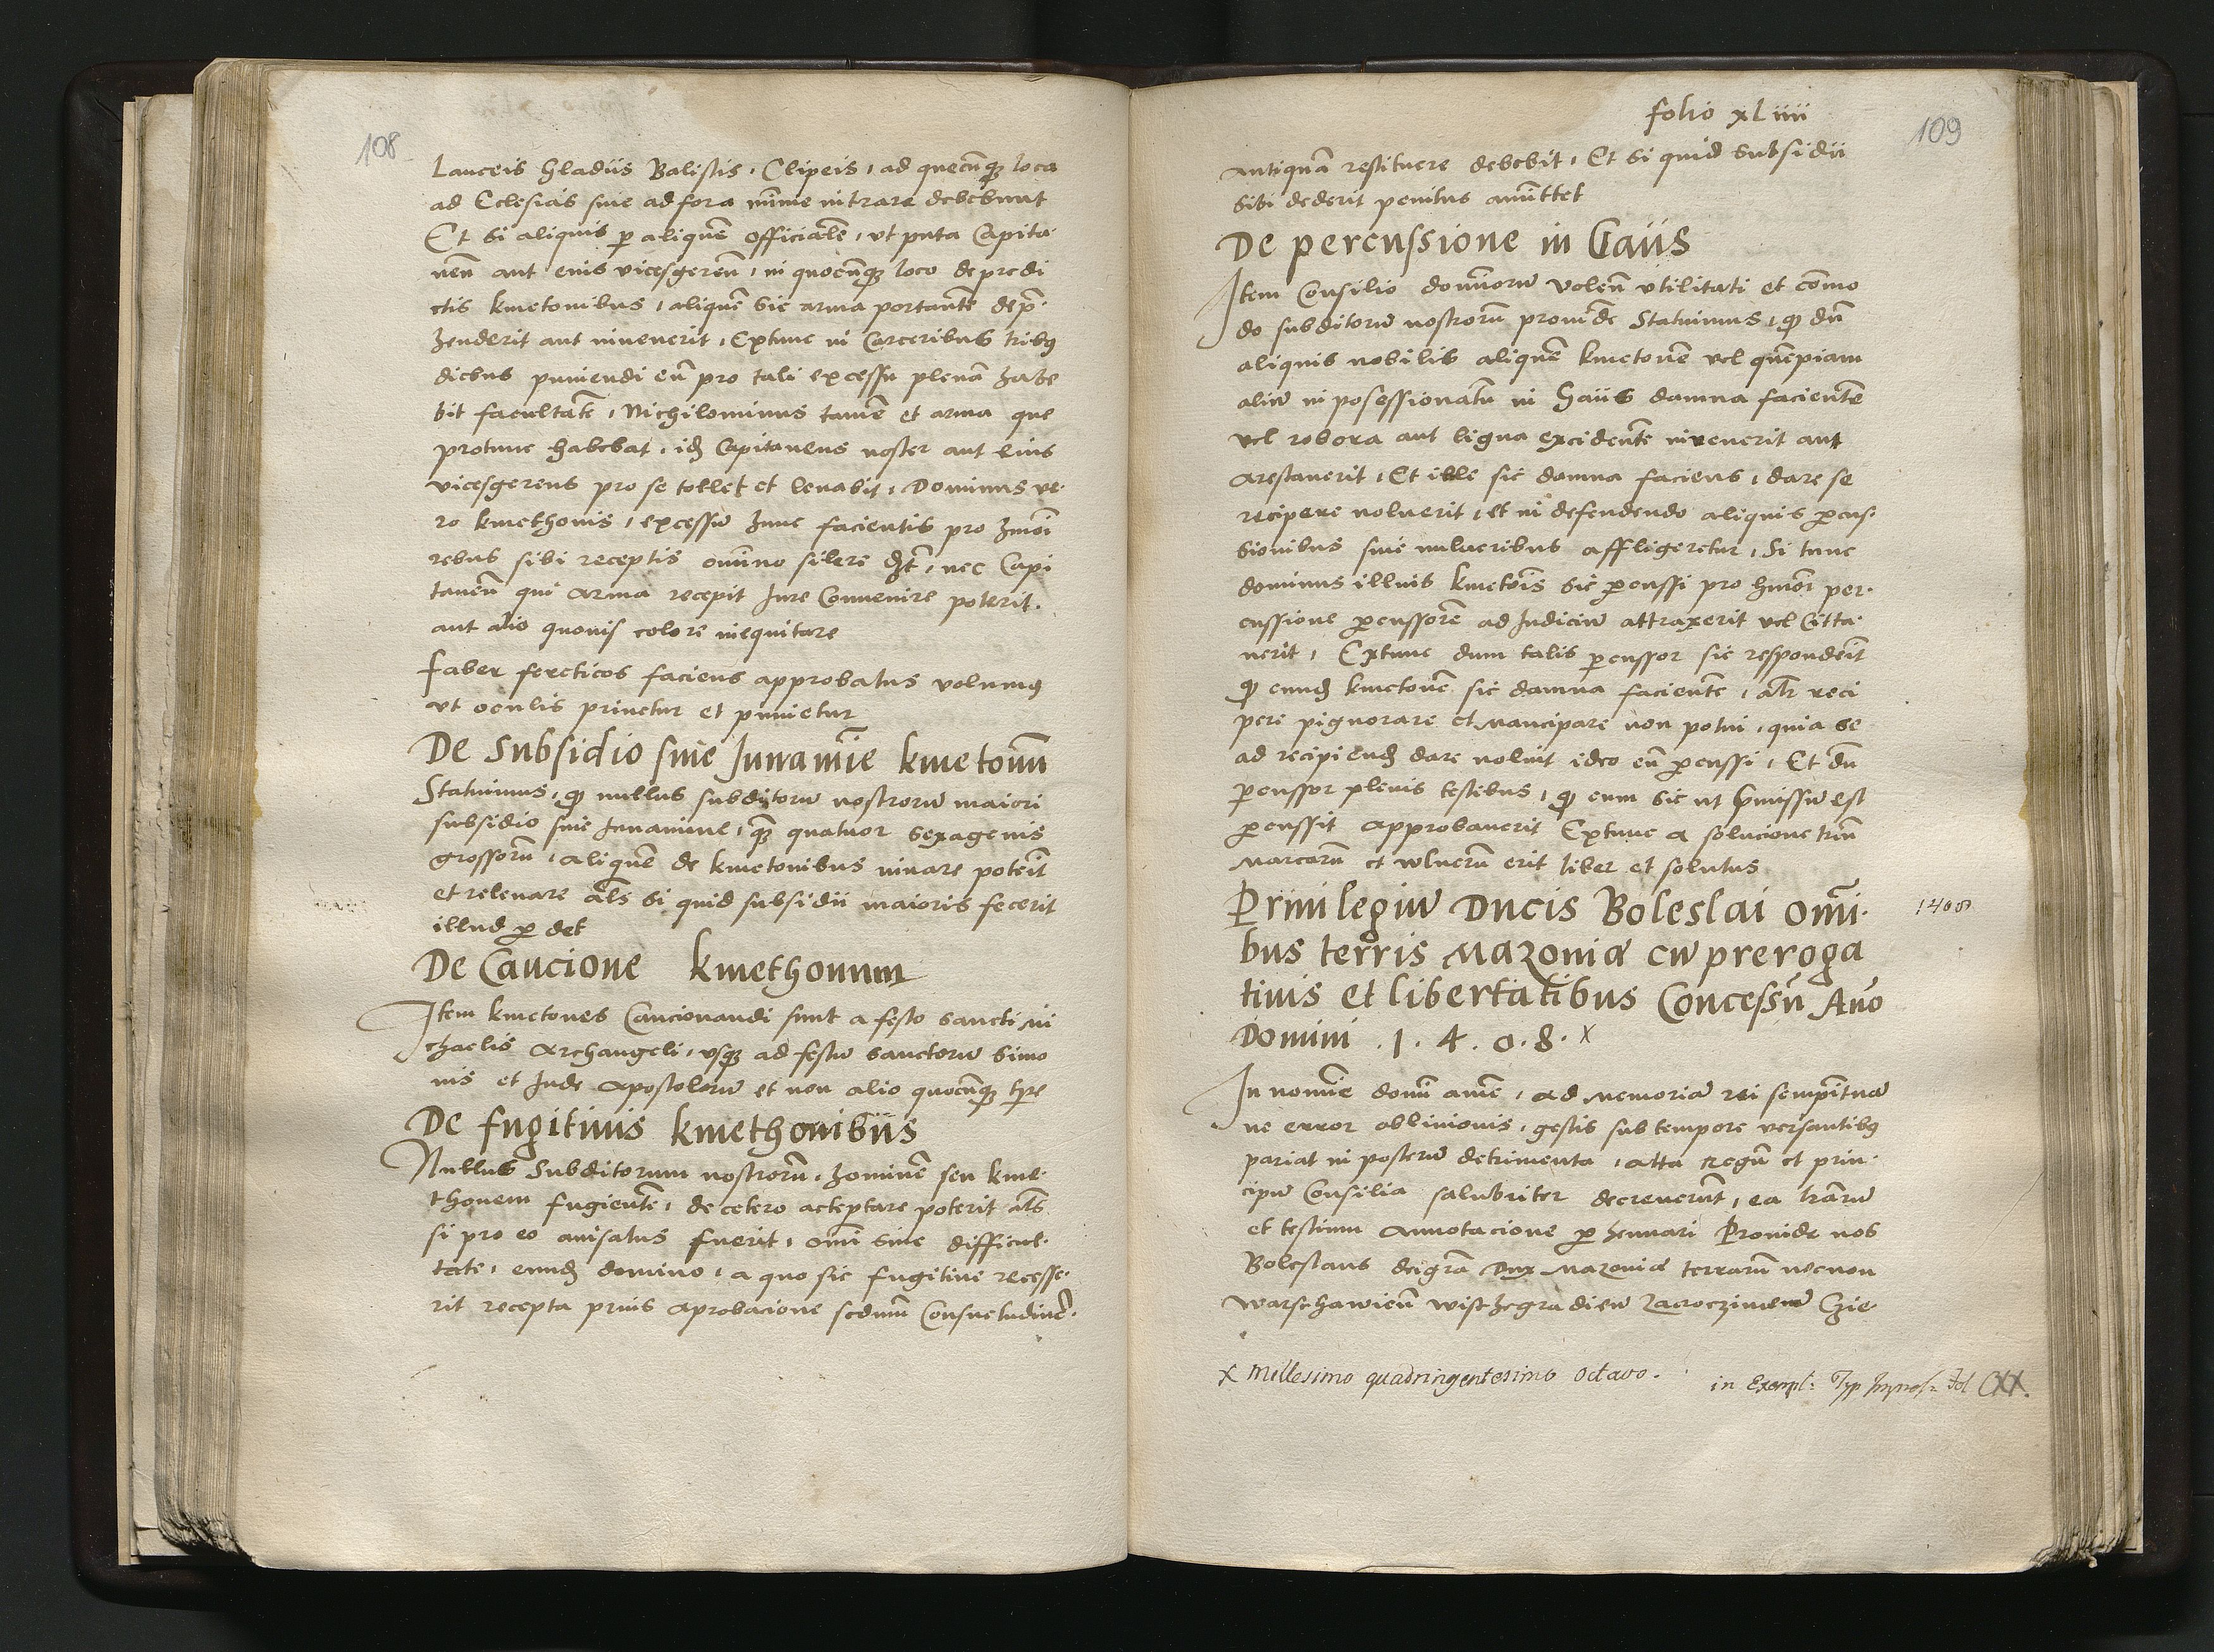 108
Lanceis Gladiis Balistis, Clipeis, ad quecũqȝ loca
ad Eclesias siue ad fora mĩime intrare debebunt
Et si aliquis p aliquẽ officialẽ, vt puta Capita-
neũ aut eius vicesgerẽũ, in quocũqȝ loco de predi
ctis kmetonibus, aliquẽ sic arma portantẽ dep̃-
henderit aut invenerit, Extunc in Carceribus tribꝰ
diebus puniendi eũ pro tali excessu plenã habe
bit facultatẽ, Nichilominus tamẽ et arma que
protunc habebat, idẽ Capitaneus noster aut eius
vicesgerens pro se tollet et leuabit, Dominus ve-
ro kmethonis, excessũ hunc facientis pro hmõi
rebus sibi receptis omĩno silere dȝt, nec Capi
taneũ qui arma recepit Iure Conuenire poterit.
aut alio quouis colore inequitare
Faber fercticos faciens approbatus volumꝰ
vt oculis priuetur et punietur
De Subsidio siue Iuuamĩe kmetonũ
Statuimus, qđ nullus subditorũ nostrorũ maiori
subsidio siue Iuuamine, qȝ quatuor sexagenis
grossorũ, aliquẽ de kmetonibus iuuare poterit
et releuare als̃ si quid subsidii maioris fecerit
illud p det
De Caucione kmethonum
Item kmetones Caucionandi sunt a festo sancti mi
chaelis Archangeli, vsqȝ ad festũ sanctorũ Simo
nis et Iude Apostolorũ et non alio quocũqȝ tp̃re
De fugitiuis kmethonibus
Nullus Subditorum nostrorũ, hominẽ seu kme-
thonem fugientẽ, de cetero acteptare poterit als̃
si pro eo auisatus fuerit, omĩ sine difficul-
tate, eundȝ domino, a quo sic fugitiue recesse-
rit recepta prius aprobacione sedmũ Consuetudinẽ.
folio xLiiii
109
antiquã restituere debebit, Et si quid subsidii
sibi dederit penitus amĩttet
De percussione in Gaiis
Item Consilio domĩorũ volẽn vtilitati et cõmo
do subditorũ nostrorũ prouidẽ Statuimus, qđ dũ
aliquis nobilis aliquẽ kmetonẽ vel quẽpiam
aliũ inposessionatũ in Gaiis damna facientẽ
vel robora aut ligna excidentẽ invenerit aut
arestauerit, Et ille sic damna faciens, dare se
recipere noluerit, et in defendendo aliquis pcus-
sionibus siue uulneribus affligeretur, Si tunc
dominus illius kmetõis sic pcussi pro hmõi per-
cussione pcussorẽ ad Iudiciũ attraxerit vel Citta-
uerit, Extunc dum talis pcussor sic respondeit
qđ eundȝ kmetonẽ sic damna facientẽ, alr̃ reci
pere pignorare et mancipare non potui, quia se
ad recipiendȝ dare noluit ideo eũ pcussi, Et dũ
pcussor plenis testibus, qđ eum sic ut p̃missũ est
pcussit approbauerit Extunc a solucione triũ
marcarũ et wlnerũ erit liber et solutus
Priuilegiũ Ducis Boleslai omĩ-
bus terris Mazouiæ cũ preroga
tiuis et libertatibus Concessũ Año
Domini .1.4.0.8. x
1408
In nomĩe domĩ amẽ, ad memoriã rei sempĩtnæ
ne error obliuionis, gestis sub tempore versantibꝰ
pariat in posterũ detrimenta, alta regũ et prin-
cipũ Consilia salubriter decreuerũt, ea lr̃arũ
et testium annotacione phennari Prouide nos
Boleslaus deigrã Dux Mazouiæ terrarũ necnon
Warschawieñ Wischegradieñ Zacroczimeñ Czie-
x Millesimo quadringentesimo octavo.
in Exempl: Typ Impres: fol CXX.